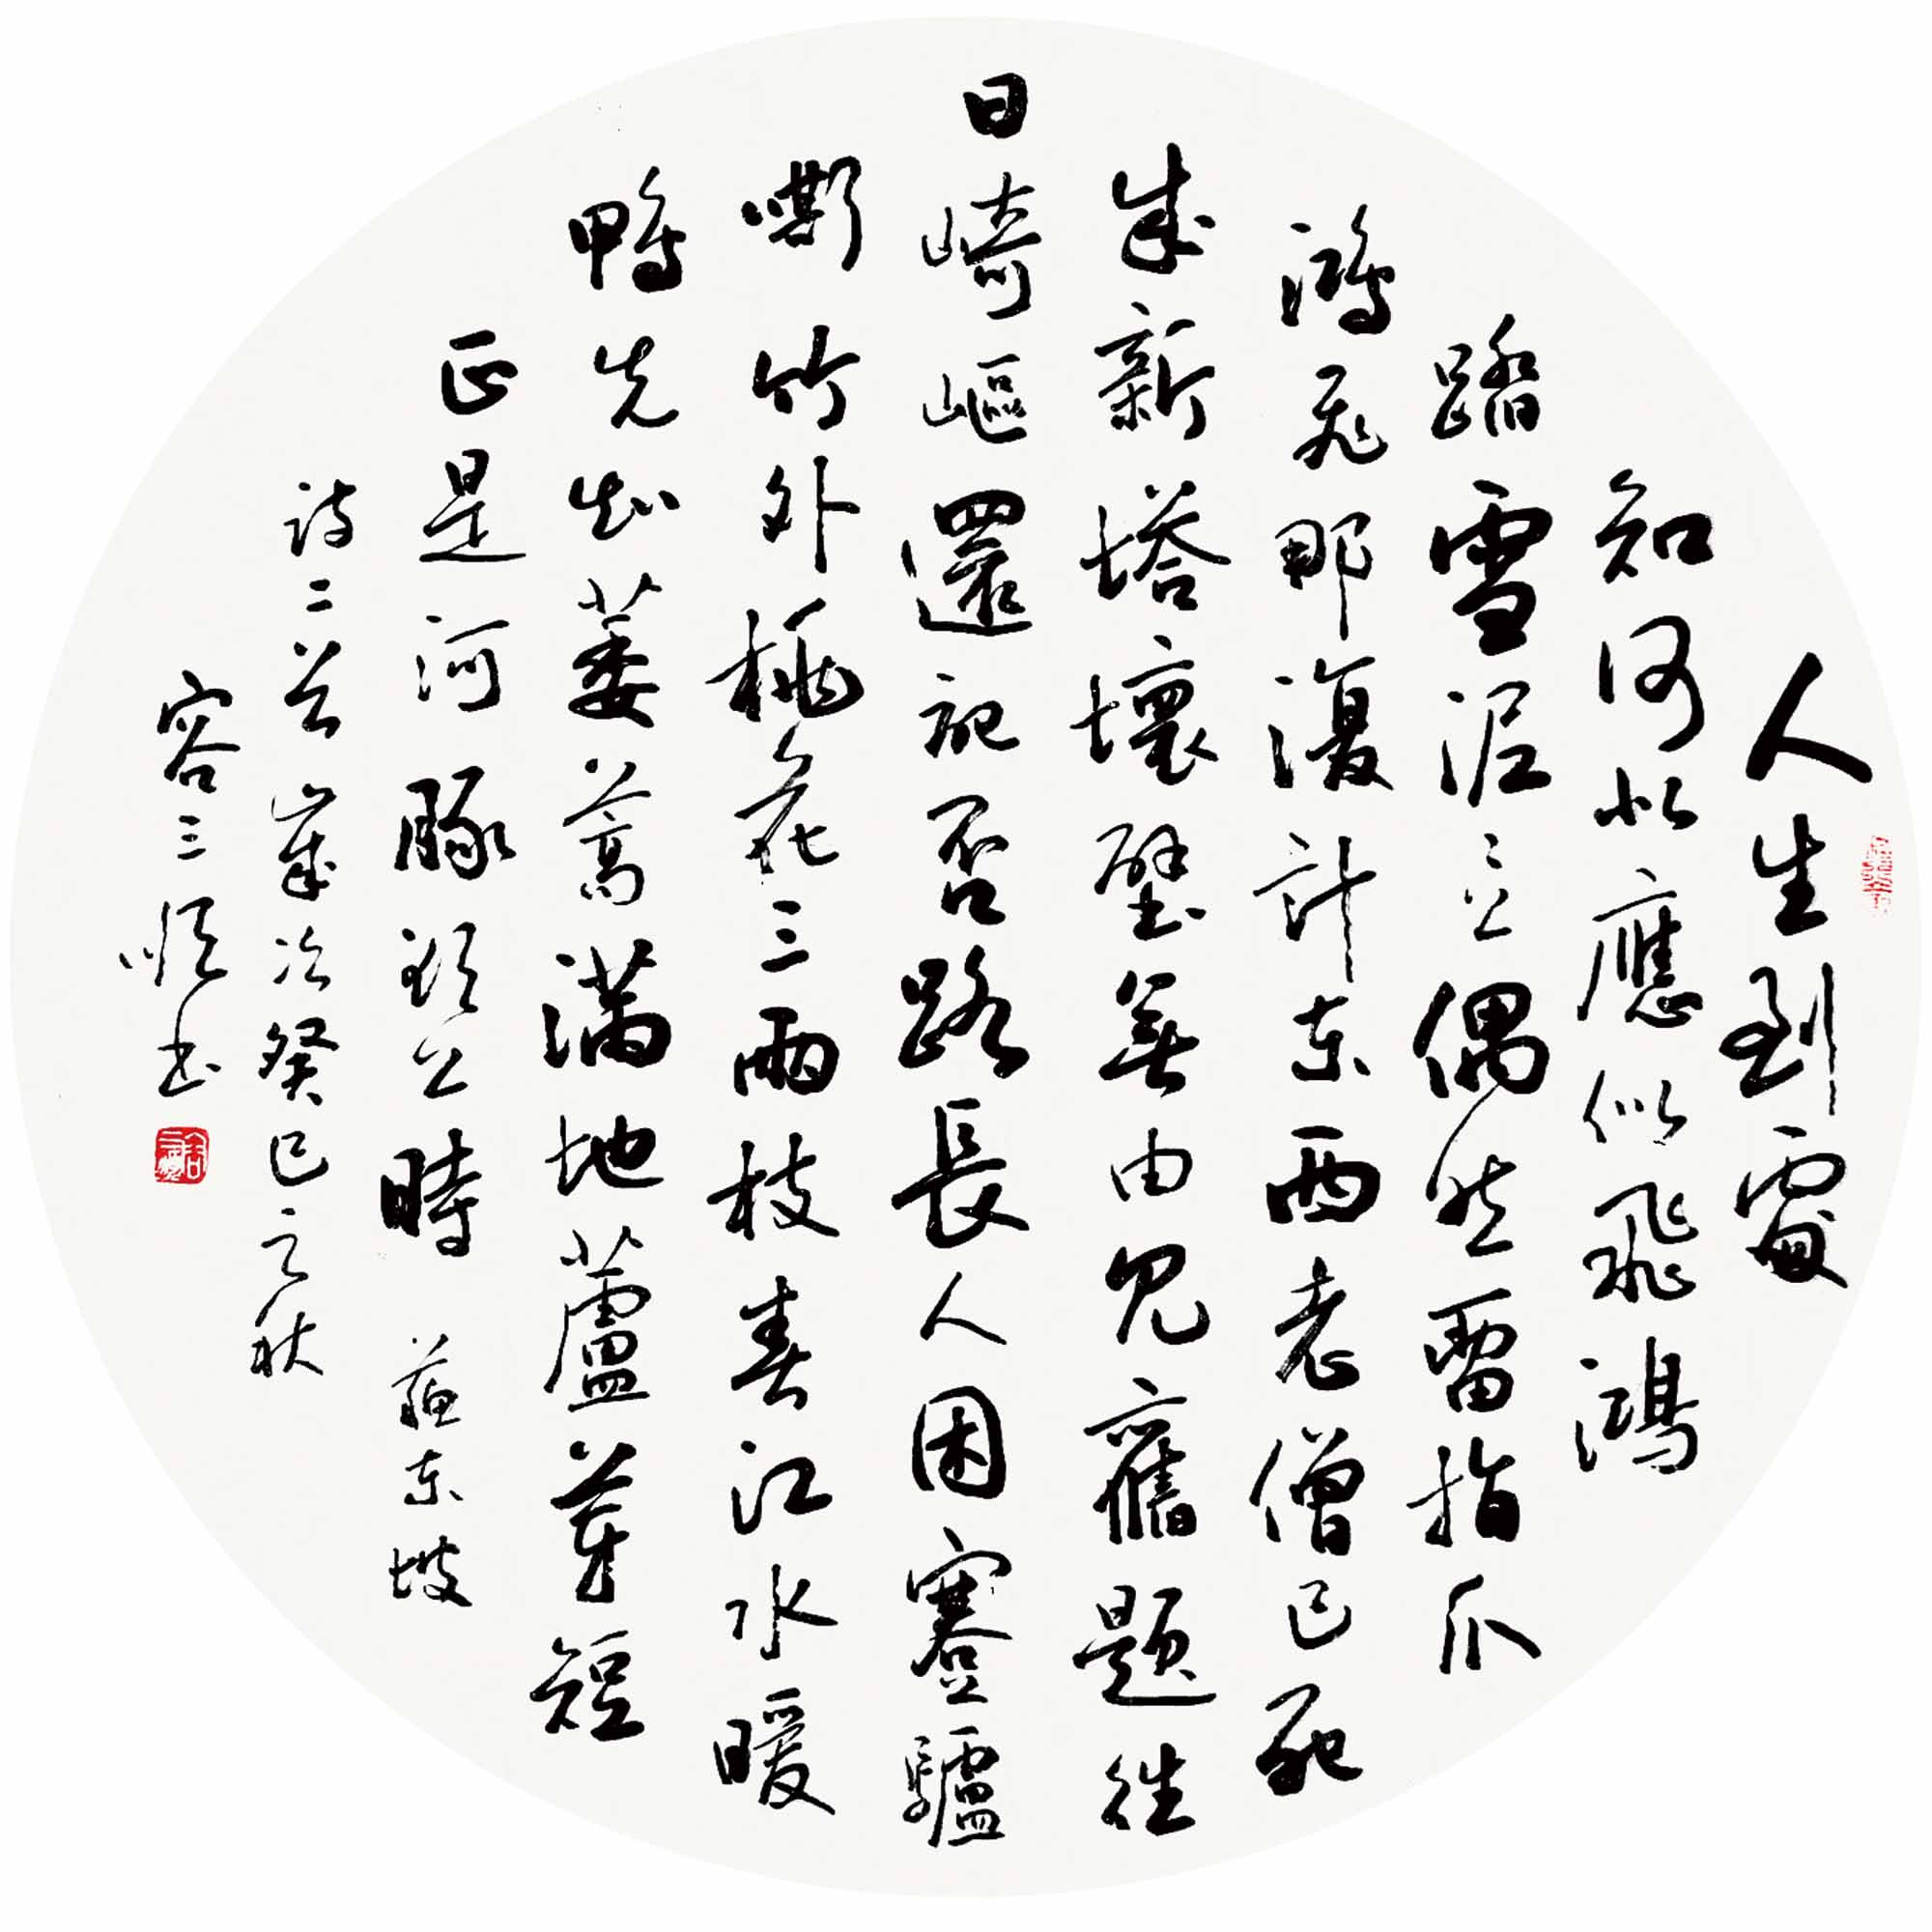 人生到處
知何似應似飛鴻
踏雪泥〻上偶然留指爪
鴻飛那復計東西老僧已死
成新塔壞壁無由見舊題往
日崎嶇還記否路長人困蹇驢
嘶竹外桃花三兩枝春江水暖
鴨先知蔞蒿滿地蘆芽短
正是河豚欲上時 蘇東坡
詩二首 歲次癸巳之秋
容三順書